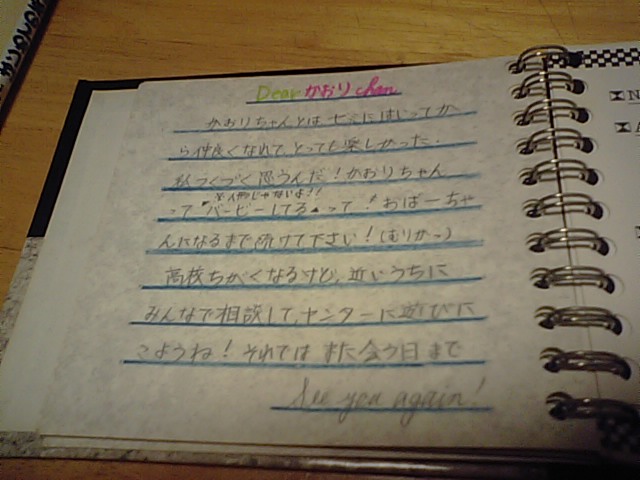 Dear かおり chan
かおりちゃんとは ゼミにはいってか
ら仲良くなれて、とっても楽しかった。
私つくづく思うんだ！かおりちゃん
※人形じゃないよ!!
って"バービーしてる"って！おばーちゃ
んになるまで続けて下さい！(むりかっ)
高校ちがくなるけど、近いうちに
みんなで相談して、センターに遊びに
こようね！それでは また会う日まで
See you again!
N